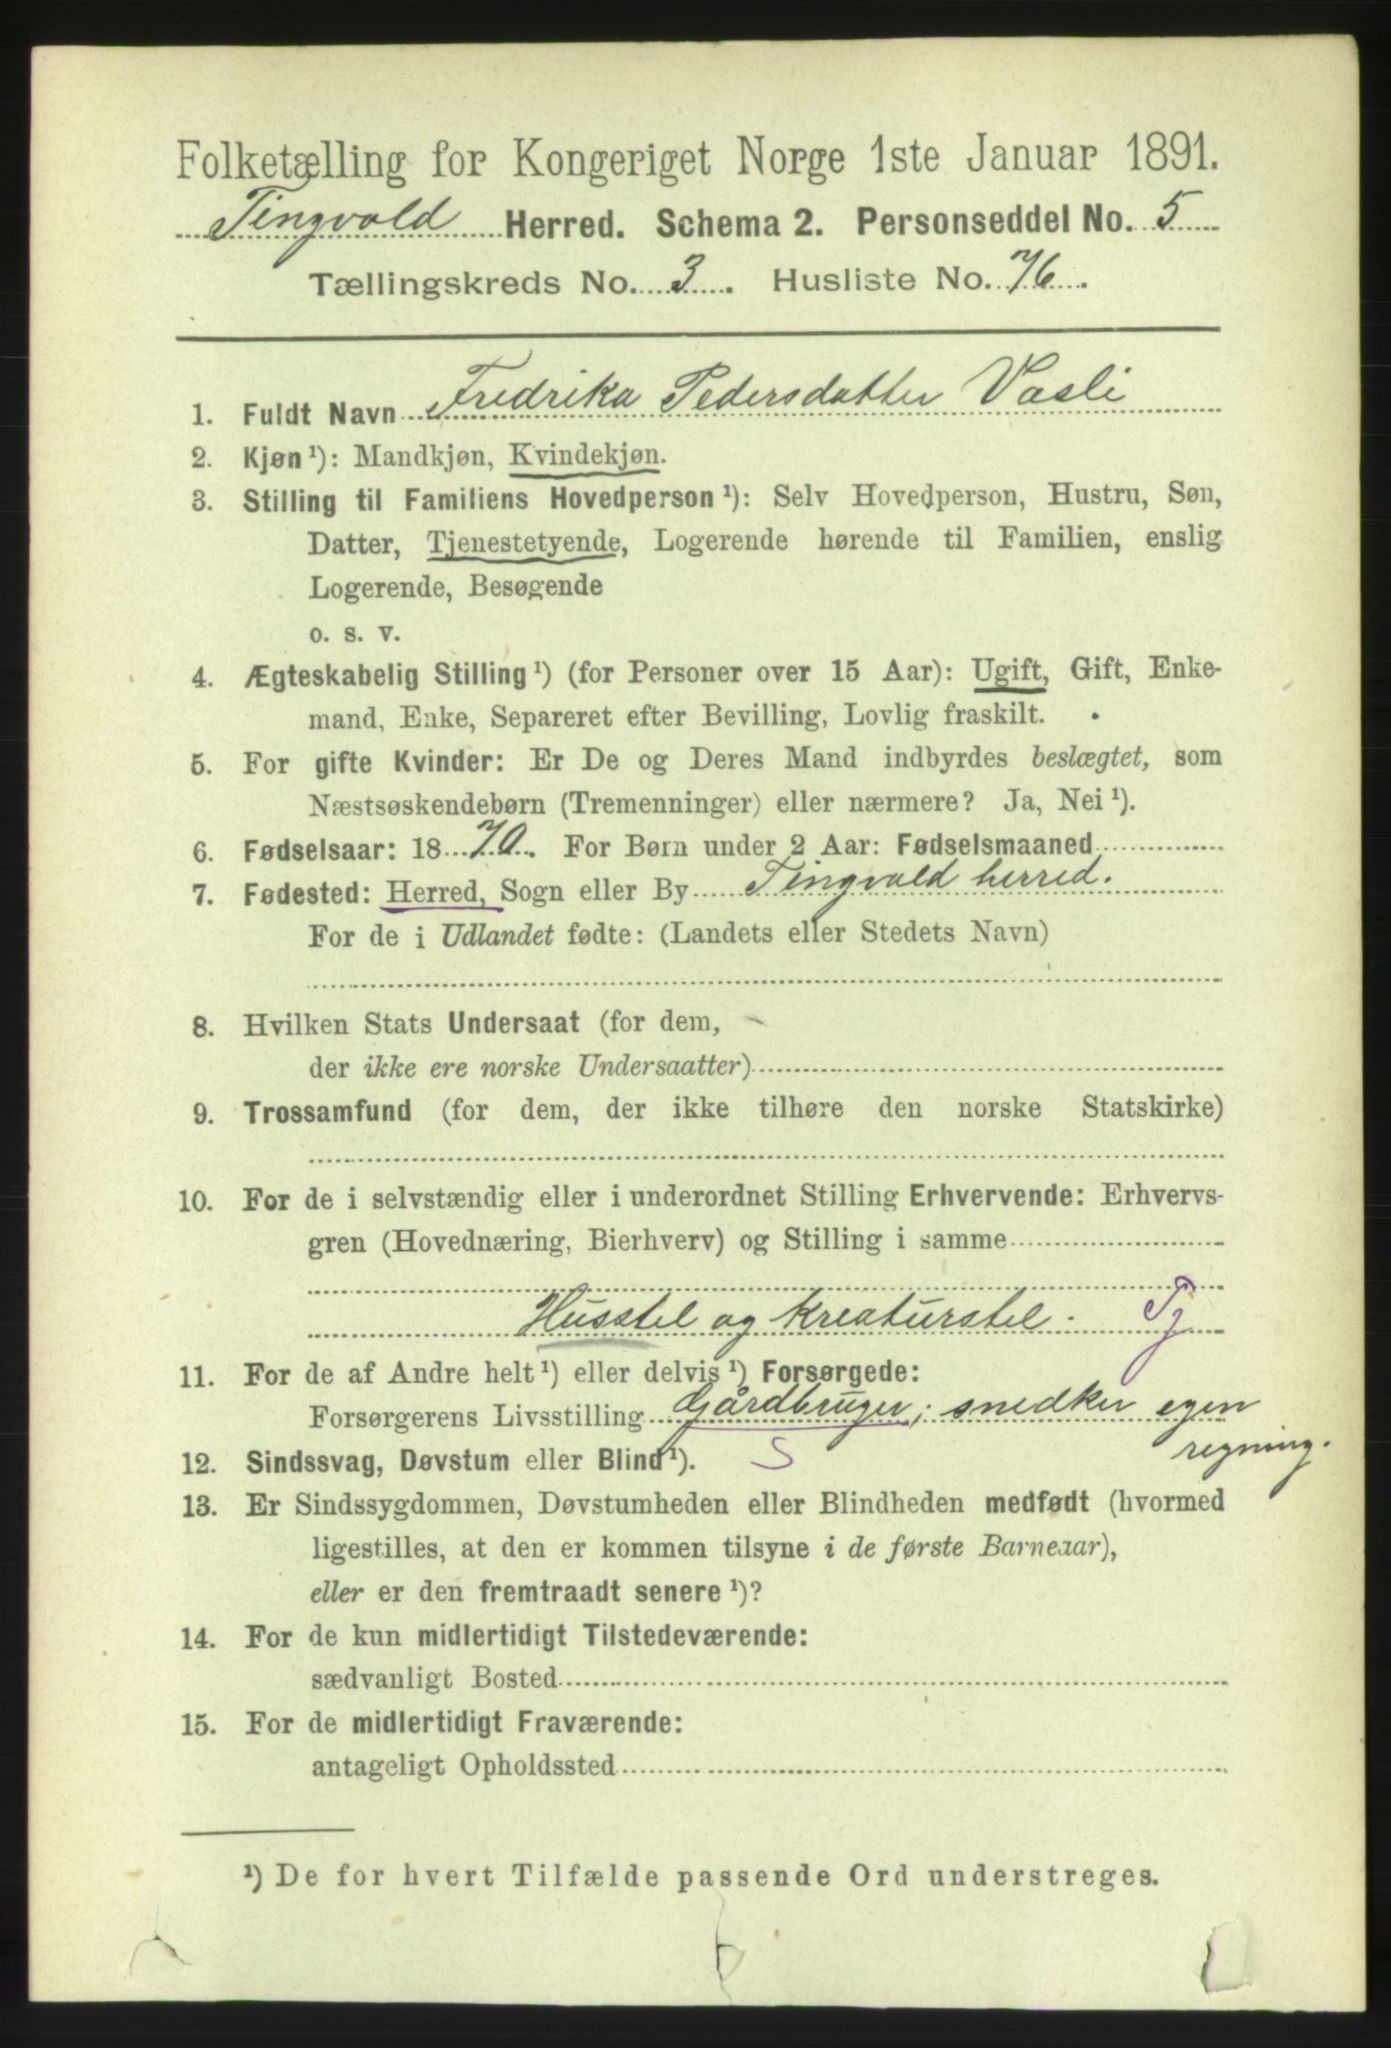 Folketælling for Kongeriget Norge 1ste Januar 1891.
Tingvold Herred. Schema 2. Personseddel No. 5
Tællingskreds No. 3. Husliste No. 76.
1. Fuldt Navn Fredrika Pedersdatter Vasli
2. Kjøn¹): Mandkjøn, Kvindekjøn.
3. Stilling til Familiens Hovedperson¹): Selv Hovedperson, Hustru, Søn,
Datter, Tjenestetyende, Logerende hørende til Familien, enslig
Logerende, Besøgende
o. s. v.
4. Ægteskabelig Stilling¹) (for Personer over 15 Aar): Ugift, Gift, Enke-
mand, Enke, Separeret efter Bevilling, Lovlig fraskilt.
5. For gifte Kvinder: Er De og Deres Mand indbyrdes beslægtet, som
Næstsøskendebørn (Tremenninger) eller nærmere? Ja, Nei¹).
6. Fødselsaar: 1870. For Børn under 2 Aar: Fødselsmaaned
7. Fødested: Herred, Sogn eller By Tingvold herred.
For de i Udlandet fødte: (Landets eller Stedets Navn)
8. Hvilken Stats Undersaat (for dem,
der ikke ere norske Undersaatter)
9. Trossamfund (for dem, der ikke tilhøre den norske Statskirke)
10. For de i selvstændig eller i underordnet Stilling Erhvervende: Erhvervs-
gren (Hovednæring, Bierhverv) og Stilling i samme
Husstel og kreaturstel. Tj
11. For de af Andre helt¹) eller delvis¹) Forsørgede:
Forsørgerens Livsstilling Gårdbruger; snedker egen
regning.
12. Sindssvag, Døvstum eller Blind¹). S
13. Er Sindssygdommen, Døvstumheden eller Blindheden medfødt (hvormed
ligestilles, at den er kommen tilsyne i de første Barneaar),
eller er den fremtraadt senere¹)?
14. For de kun midlertidigt Tilstedeværende:
sædvanligt Bosted
15. For de midlertidigt Fraværende:
antageligt Opholdssted
¹) De for hvert Tilfælde passende Ord understreges.